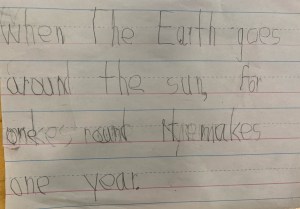 When The Earth goes
around the sun, for
one round it makes
one year.